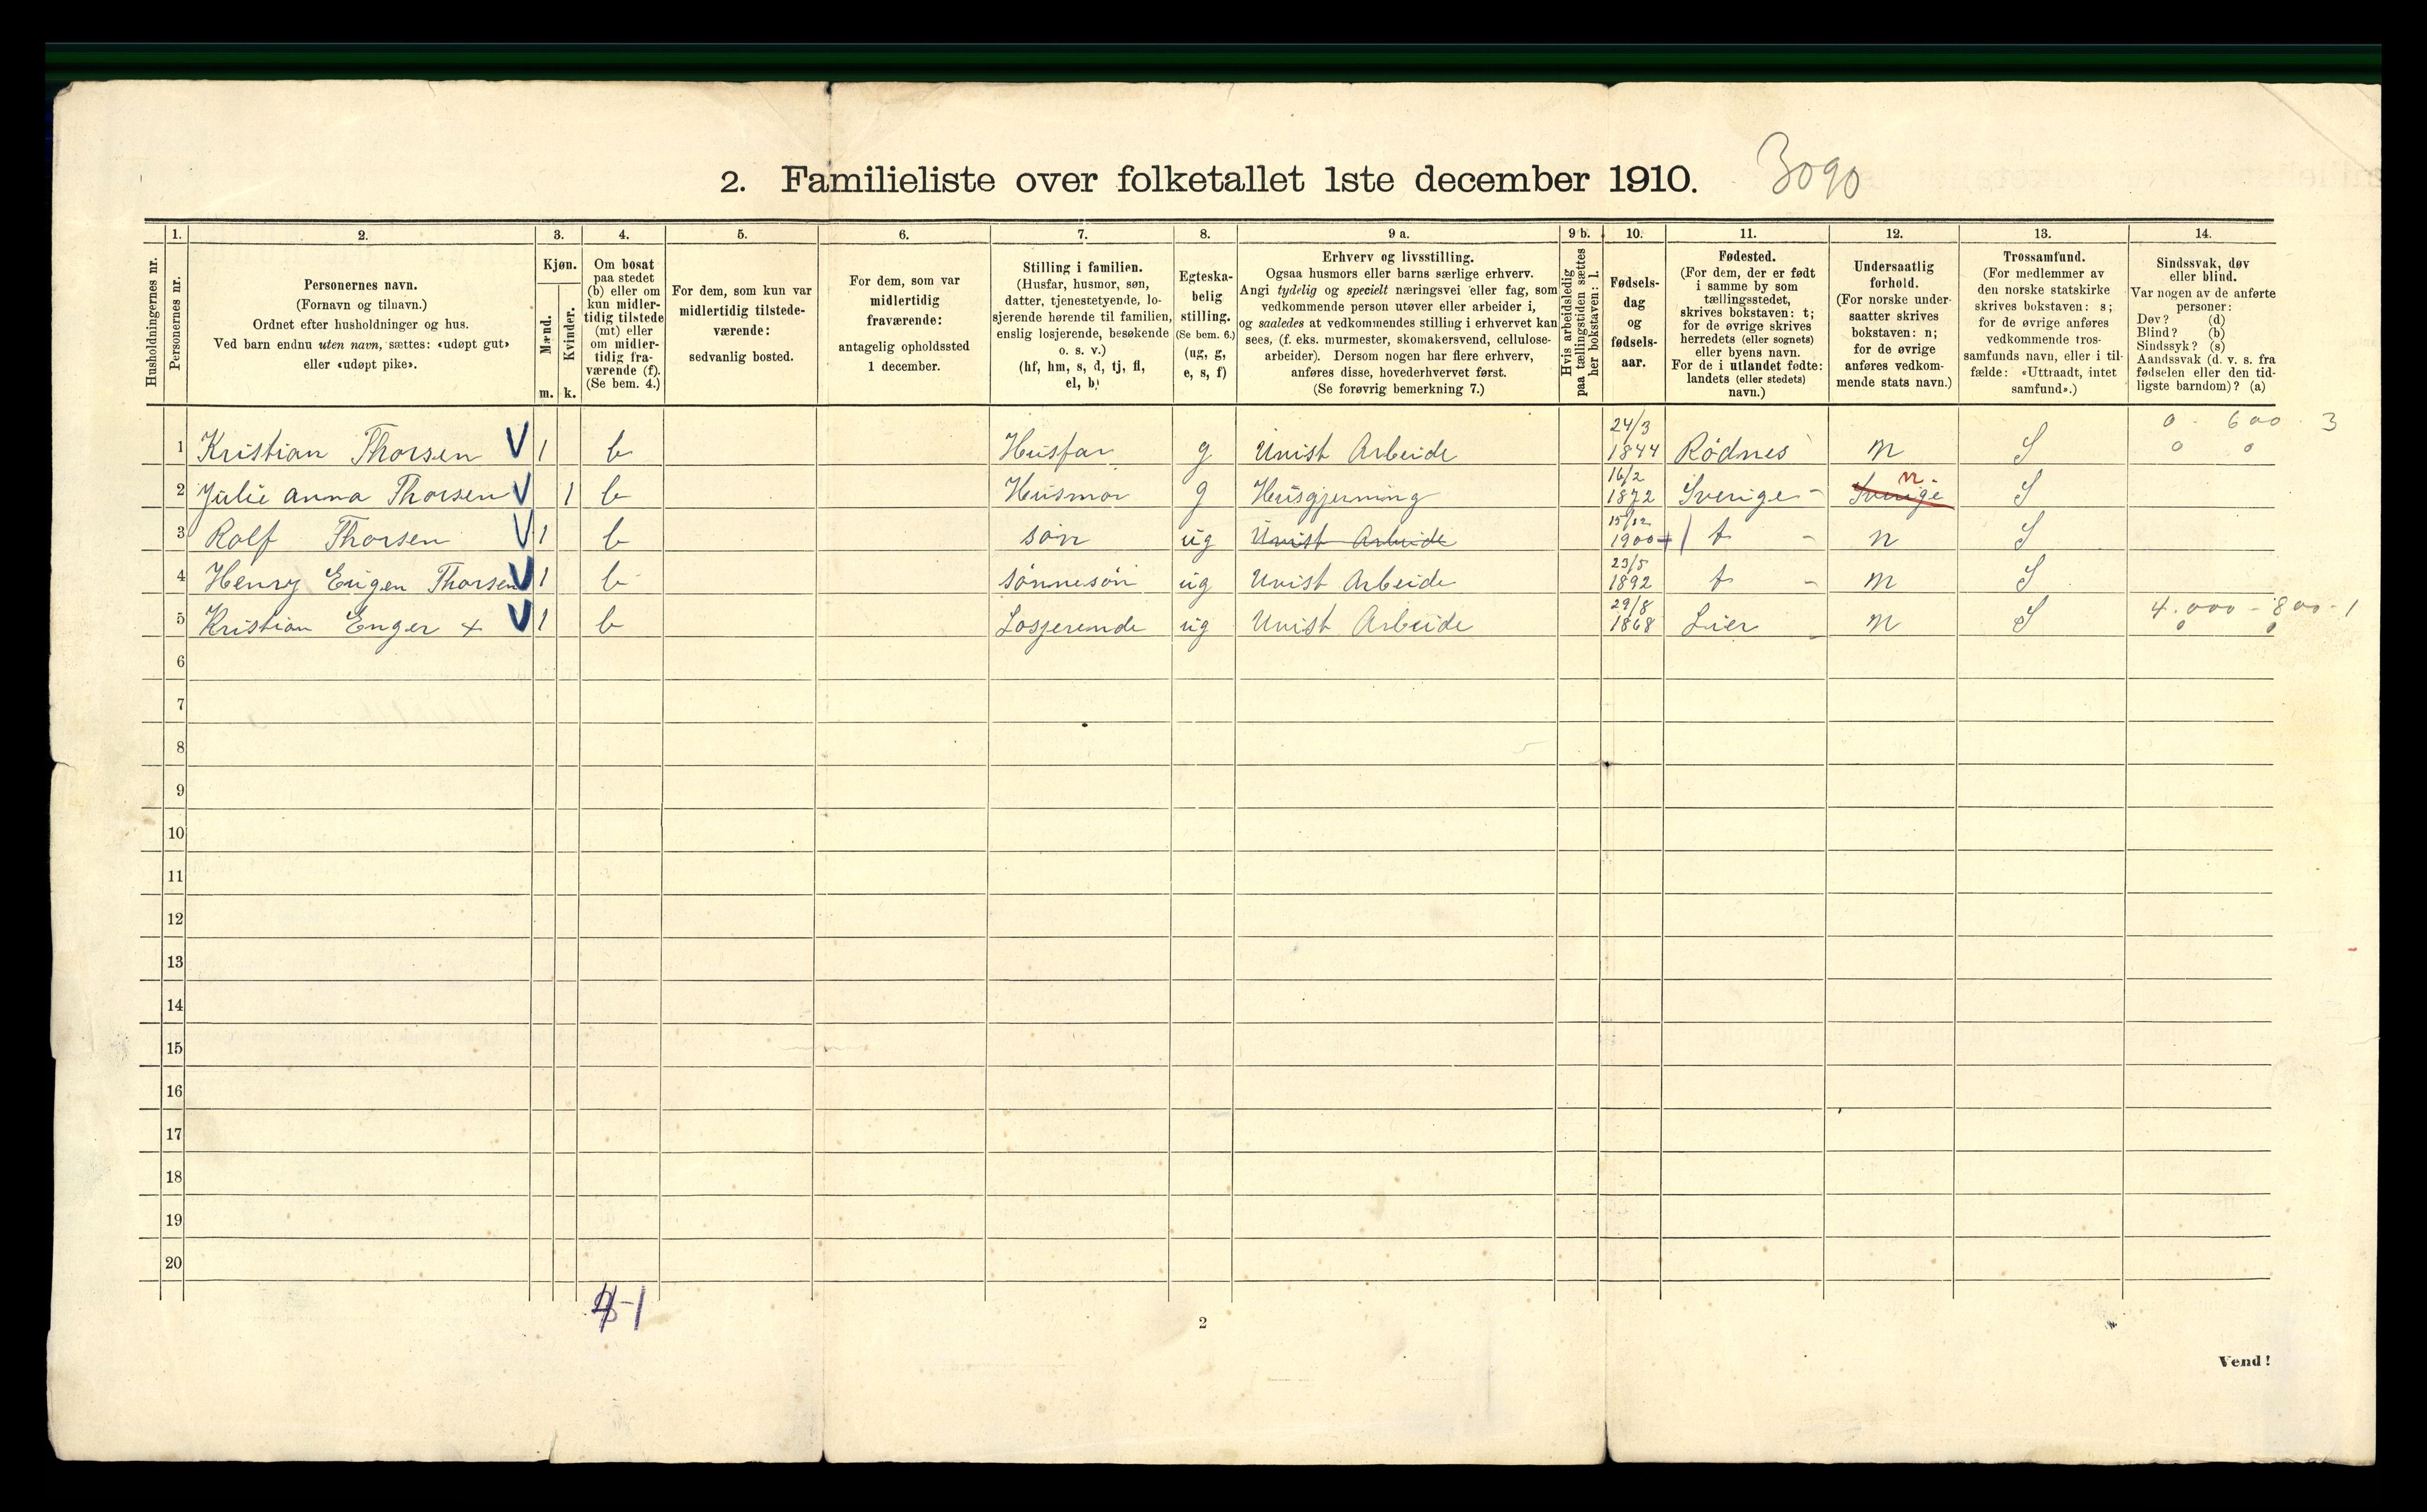 2. Familieliste over folketallet 1ste december 1910. 3090
1. 2. 3. 4. 5. 6. 7. 8. 9 a. 9 b. 10. 11. 12. 13. 14.
Husholdningernes nr.
Personernes nr.
Personernes navn.
(Fornavn og tilnavn.)
Ordnet efter husholdninger og hus.
Ved barn endnu uten navn, sættes: «udøpt gut»
eller «udøpt pike».
Kjøn.
Mænd.
m.
Kvinder.
k.
Om bosat
paa stedet
(b) eller om
kun midler-
tidig tilstede
(mt) eller
om midler-
tidig fra-
værende (f).
(Se bem. 4.)
For dem, som kun var
midlertidig tilstede-
værende:
sedvanlig bosted.
For dem, som var
midlertidig
fraværende:
antagelig opholdssted
1 december.
Stilling i familien.
(Husfar, husmor, søn,
datter, tjenestetyende, lo-
sjerende hørende til familien,
enslig losjerende, besøkende
o. s. v.)
(hf, hm, s, d, tj, fl,
el, b)
Egteska-
belig
stilling.
(Se bem. 6.)
(ug, g,
e, s, f)
Erhverv og livsstilling.
Ogsaa husmors eller barns særlige erhverv.
Angi tydelig og specielt næringsvei eller fag, som
vedkommende person utøver eller arbeider i,
og saaledes at vedkommendes stilling i erhvervet kan
sees, (f. eks. murmester, skomakersvend, cellulose-
arbeider). Dersom nogen har flere erhverv,
anføres disse, hovederhvervet først.
(Se forøvrig bemerkning 7.)
Hvis arbeidsledig
paa tællingstiden sættes
her bokstaven: l.
Fødsels-
dag
og
fødsels-
aar.
Fødested.
(For dem, der er født
i samme by som
tællingsstedet,
skrives bokstaven: t;
for de øvrige skrives
herredets (eller sognets)
eller byens navn.
For de i utlandet fødte:
landets (eller stedets)
navn.)
Undersaatlig
forhold.
(For norske under-
saatter skrives
bokstaven: n;
for de øvrige
anføres vedkom-
mende stats navn.)
Trossamfund.
(For medlemmer av
den norske statskirke
skrives bokstaven: s;
for de øvrige anføres
vedkommende tros-
samfunds navn, eller i til-
fælde: «Uttraadt, intet
samfund».)
Sindssvak, døv
eller blind.
Var nogen av de anførte
personer:
Døv? (d)
Blind? (b)
Sindssyk? (s)
Aandssvak (d. v. s. fra
fødselen eller den tid-
ligste barndom)? (a)
24/3 0 - 600 - 3
1 Kristian Thorsen V 1 b Husfar g Uvist Arbeide 1844 Rødnes n S 0 0
16/2 n.
2 Julie Anna Thorsen V 1 b Husmor g Husgjerning 1872 Sverige - Sverige S
15/12
3 Rolf Thorsen V 1 b søn ug Uvist Arbeide 1900 t - n S
23/5
4 Henry Eugen Thorsen V 1 b sønnesøn ug Uvist Arbeide 1892 t - n S
29/8 4.000 - 800 - 1
5 Kristian Enger x V 1 b Losjerende ug Uvist Arbeide 1868 Lier - n S 0 0
6
7
8
9
10
11
12
13
14
15
16
17
18
19
20
2
Vend!